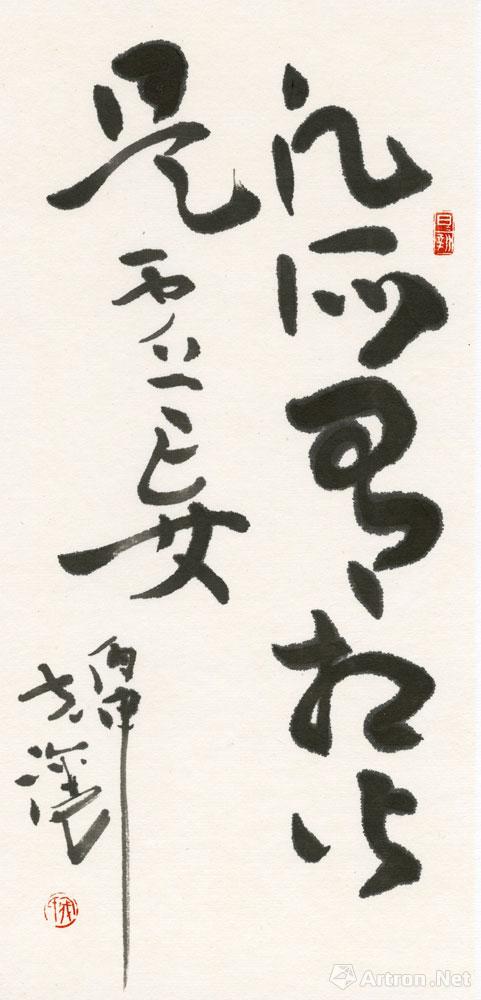 凡所有相皆
是虚妄
丙申
Artron.Net